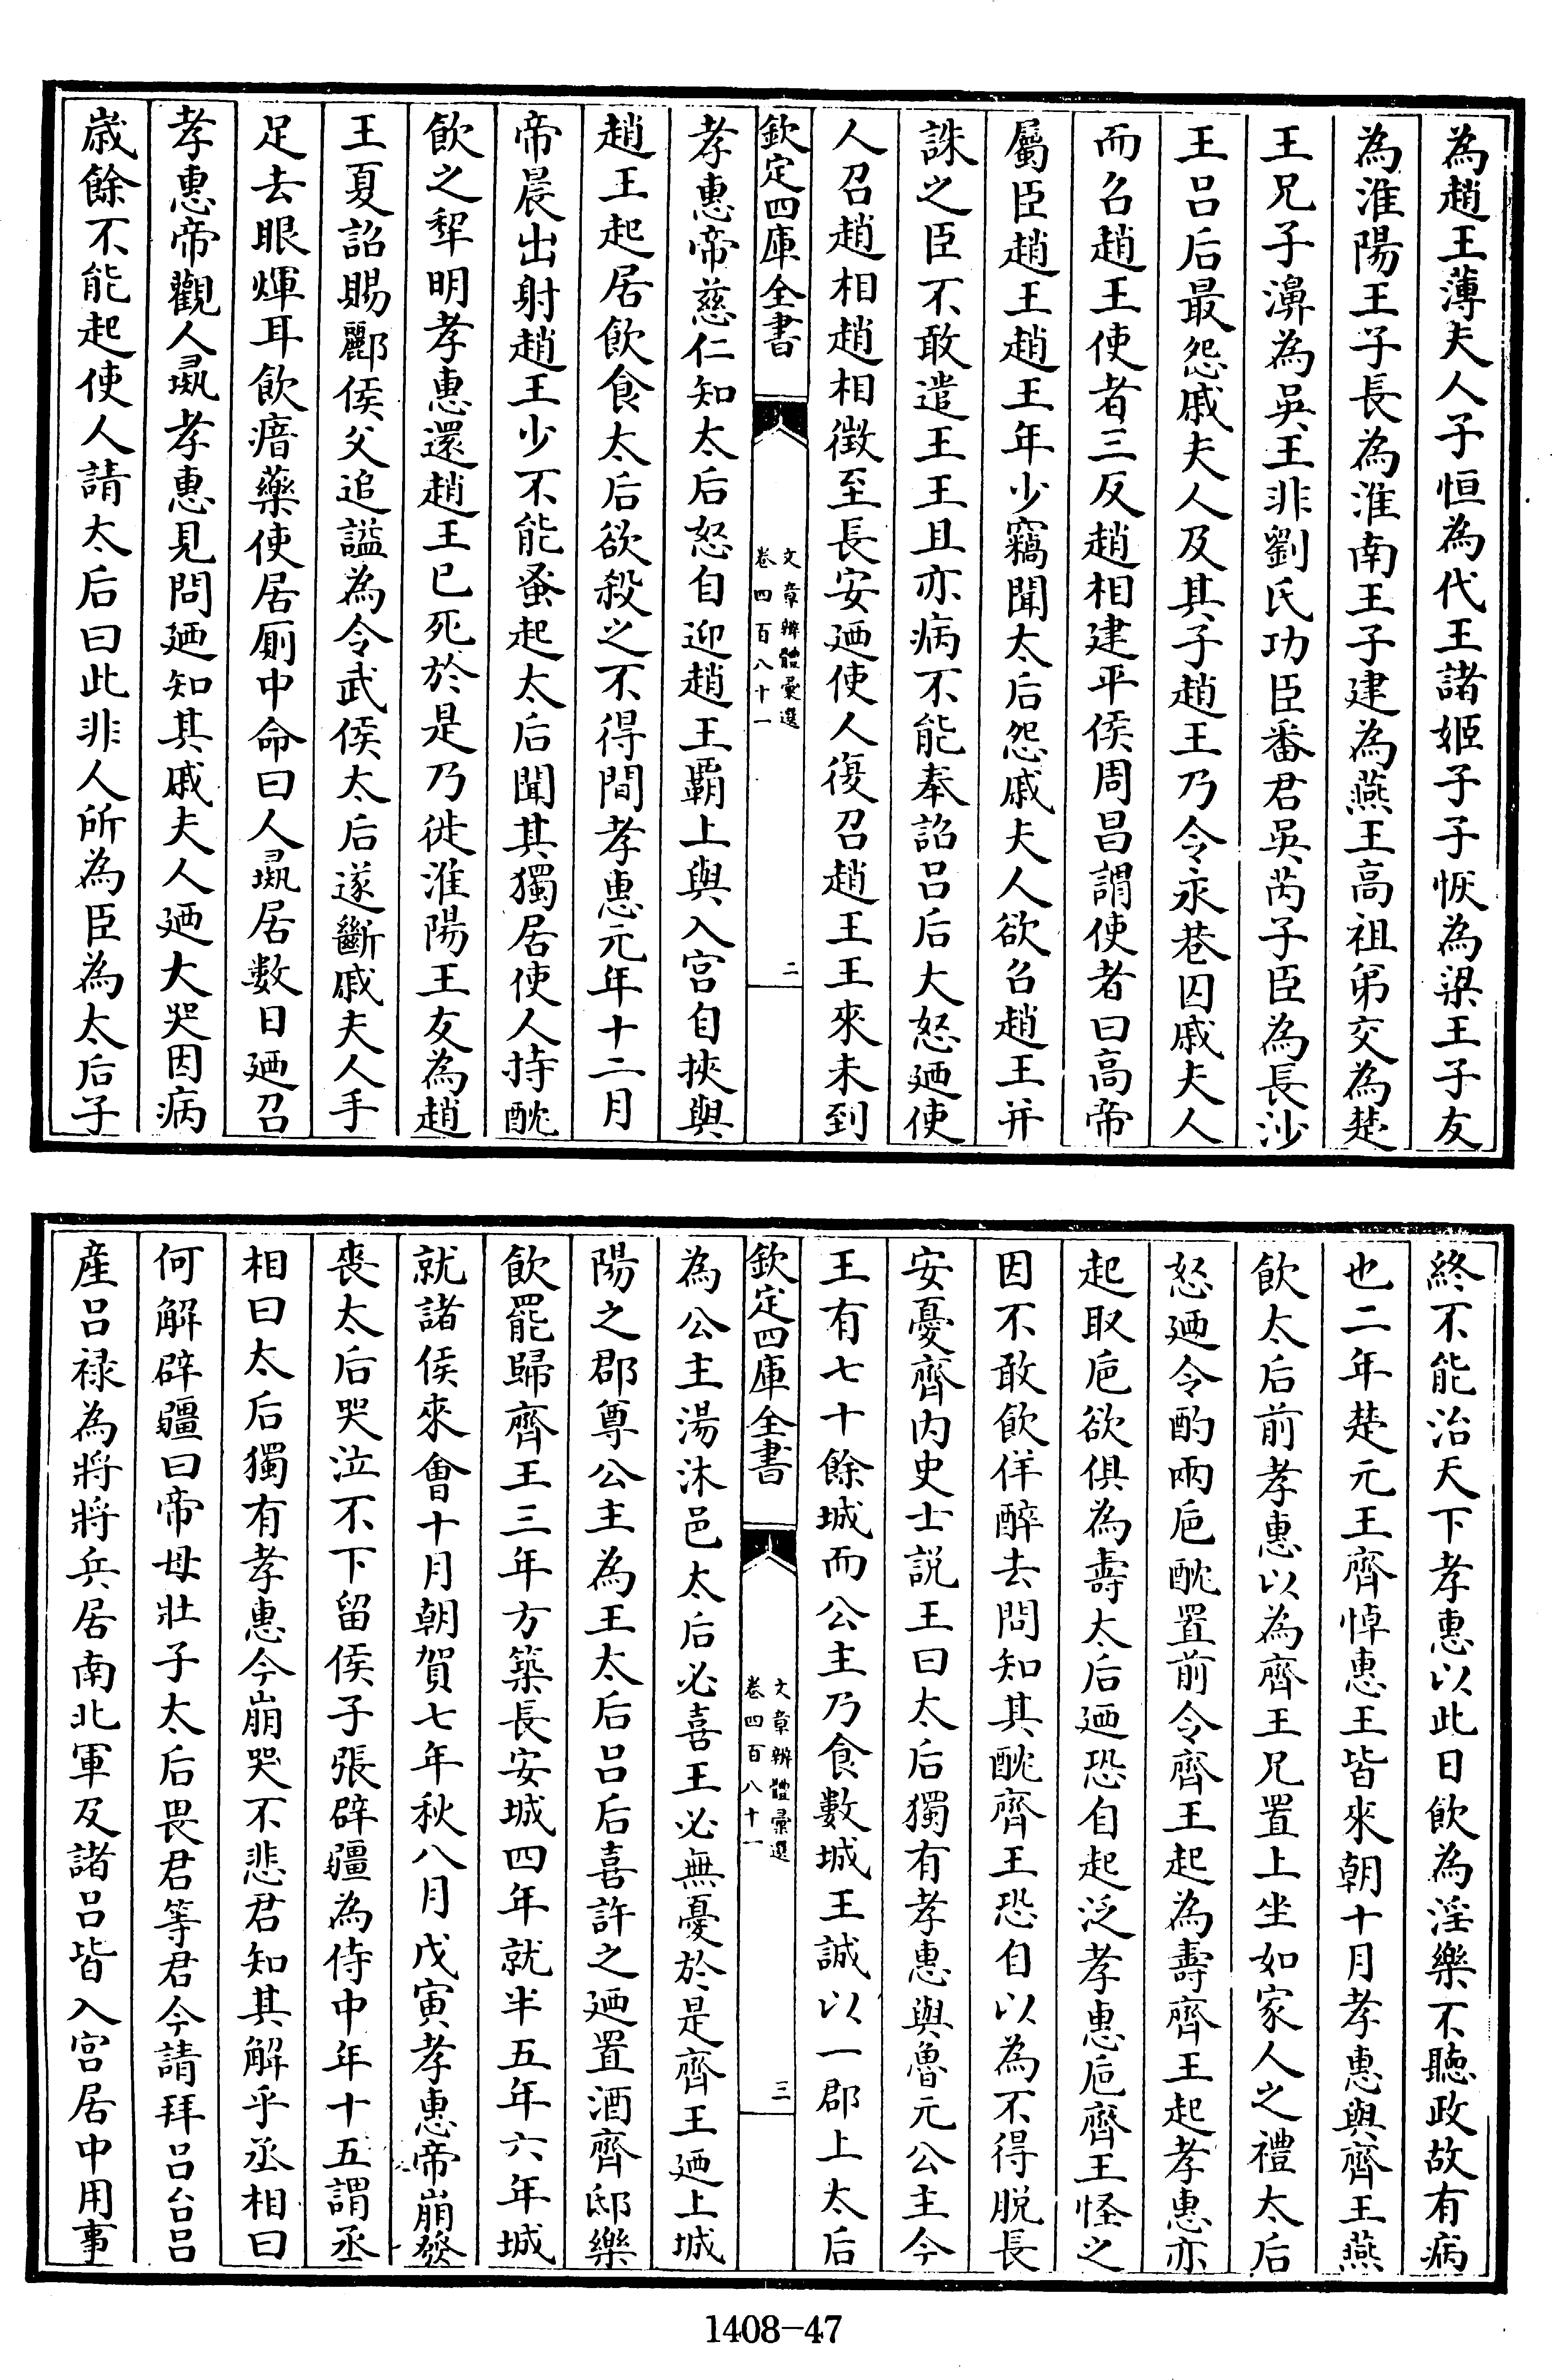 為趙王薄夫人子恒為代王諸姬子子恢為梁王子友
為淮陽王子長為淮南王子建為燕王高祖弟交為楚
王兄子濞為吳王非劉氏功臣番君吳芮子臣為長沙
王吕后最怨戚夫人及其子趙王乃令永巷囚戚夫人
而召趙王使者三反趙相建平侯周昌謂使者曰高帝
屬臣趙王趙王年少竊聞太后怨戚夫人欲召趙王并
誅之臣不敢遣王王且亦病不能奉詔吕后大怒廼使
人召趙相趙相徴至長安廼使人復召趙王王來未到
欽定四庫全書
文章辨體彚選
卷四百八十一
二
孝惠帝慈仁知太后怒自迎趙王覇上與入宫自挾與
趙王起居飲食太后欲殺之不得間孝惠元年十二月
帝晨出射趙王少不能蚤起太后聞其獨居使人持酖
飲之犂明孝惠還趙王已死於是乃徙淮陽王友為趙
王夏詔賜酈侯父追謚為令武侯太后遂斷戚夫人手
足去眼煇耳飲瘖藥使居厠中命曰人彘居數日廼召
孝惠帝觀人彘孝惠見問廼知其戚夫人廼大哭因病
嵗餘不能起使人請太后曰此非人所為臣為太后子
終不能治天下孝惠以此日飲為淫樂不聽政故有病
也二年楚元王齊悼惠王皆來朝十月孝惠與齊王燕
飲太后前孝惠以為齊王兄置上坐如家人之禮太后
怒廼令酌兩巵酖置前令齊王起為壽齊王起孝惠亦
起取巵欲俱為壽太后廼恐自起泛孝惠巵齊王怪之
因不敢飲佯醉去問知其酖齊王恐自以為不得脱長
安憂齊内史士説王曰太后獨有孝惠與魯元公主今
王有七十餘城而公主乃食數城王誠以一郡上太后
欽定四庫全書
文章辨體彚選
卷四百八十一
三
為公主湯沐邑太后必喜王必無憂於是齊王廼上城
陽之郡尊公主為王太后吕后喜許之廼置酒齊邸樂
飲罷歸齊王三年方築長安城四年就半五年六年城
就諸侯來會十月朝賀七年秋八月戊寅孝惠帝崩發
喪太后哭泣不下留侯子張辟疆為侍中年十五謂丞
相曰太后獨有孝惠今崩哭不悲君知其解乎丞相曰
何解辟疆曰帝母壯子太后畏君等君今請拜吕台吕
産吕禄為將將兵居南北軍及諸吕皆入宫居中用事
1408-47